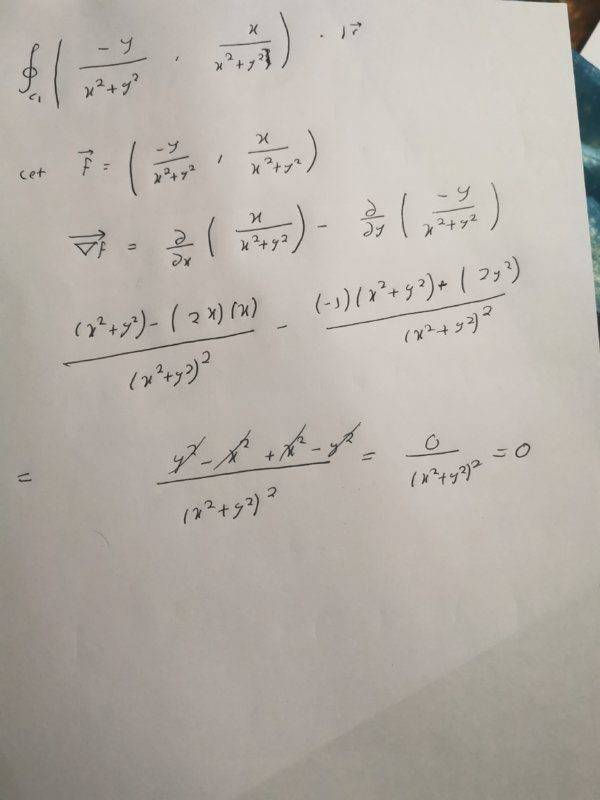 ∮_{C_1} ( -y/(x²+y²) , x/(x²+y²) ) · dr⃗
Let F⃗ = ( -y/(x²+y²) , x/(x²+y²) )
∇F⃗ = ∂/∂x ( x/(x²+y²) ) - ∂/∂y ( -y/(x²+y²) )
((x²+y²) - (2x)(x))/(x²+y²)² - ((-1)(x²+y²) + (2y²))/(x²+y²)²
= (y² - x² + x² - y²)/(x²+y²)² = 0/(x²+y²)² = 0